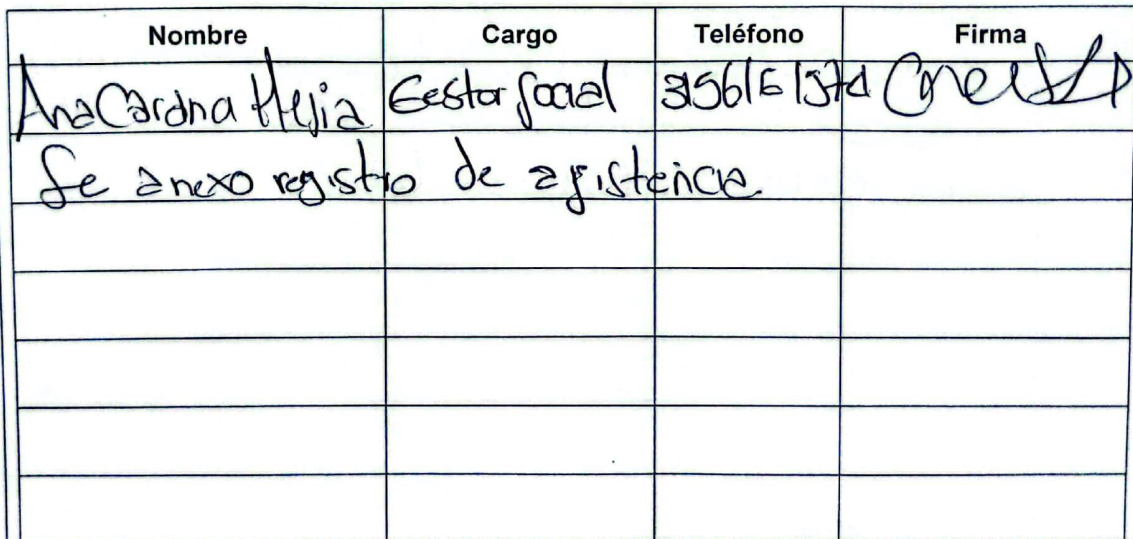 Nombre Cargo Teléfono Firma
Ana Carolina Mejia Gestor Social
Se anexo registro de asistencia